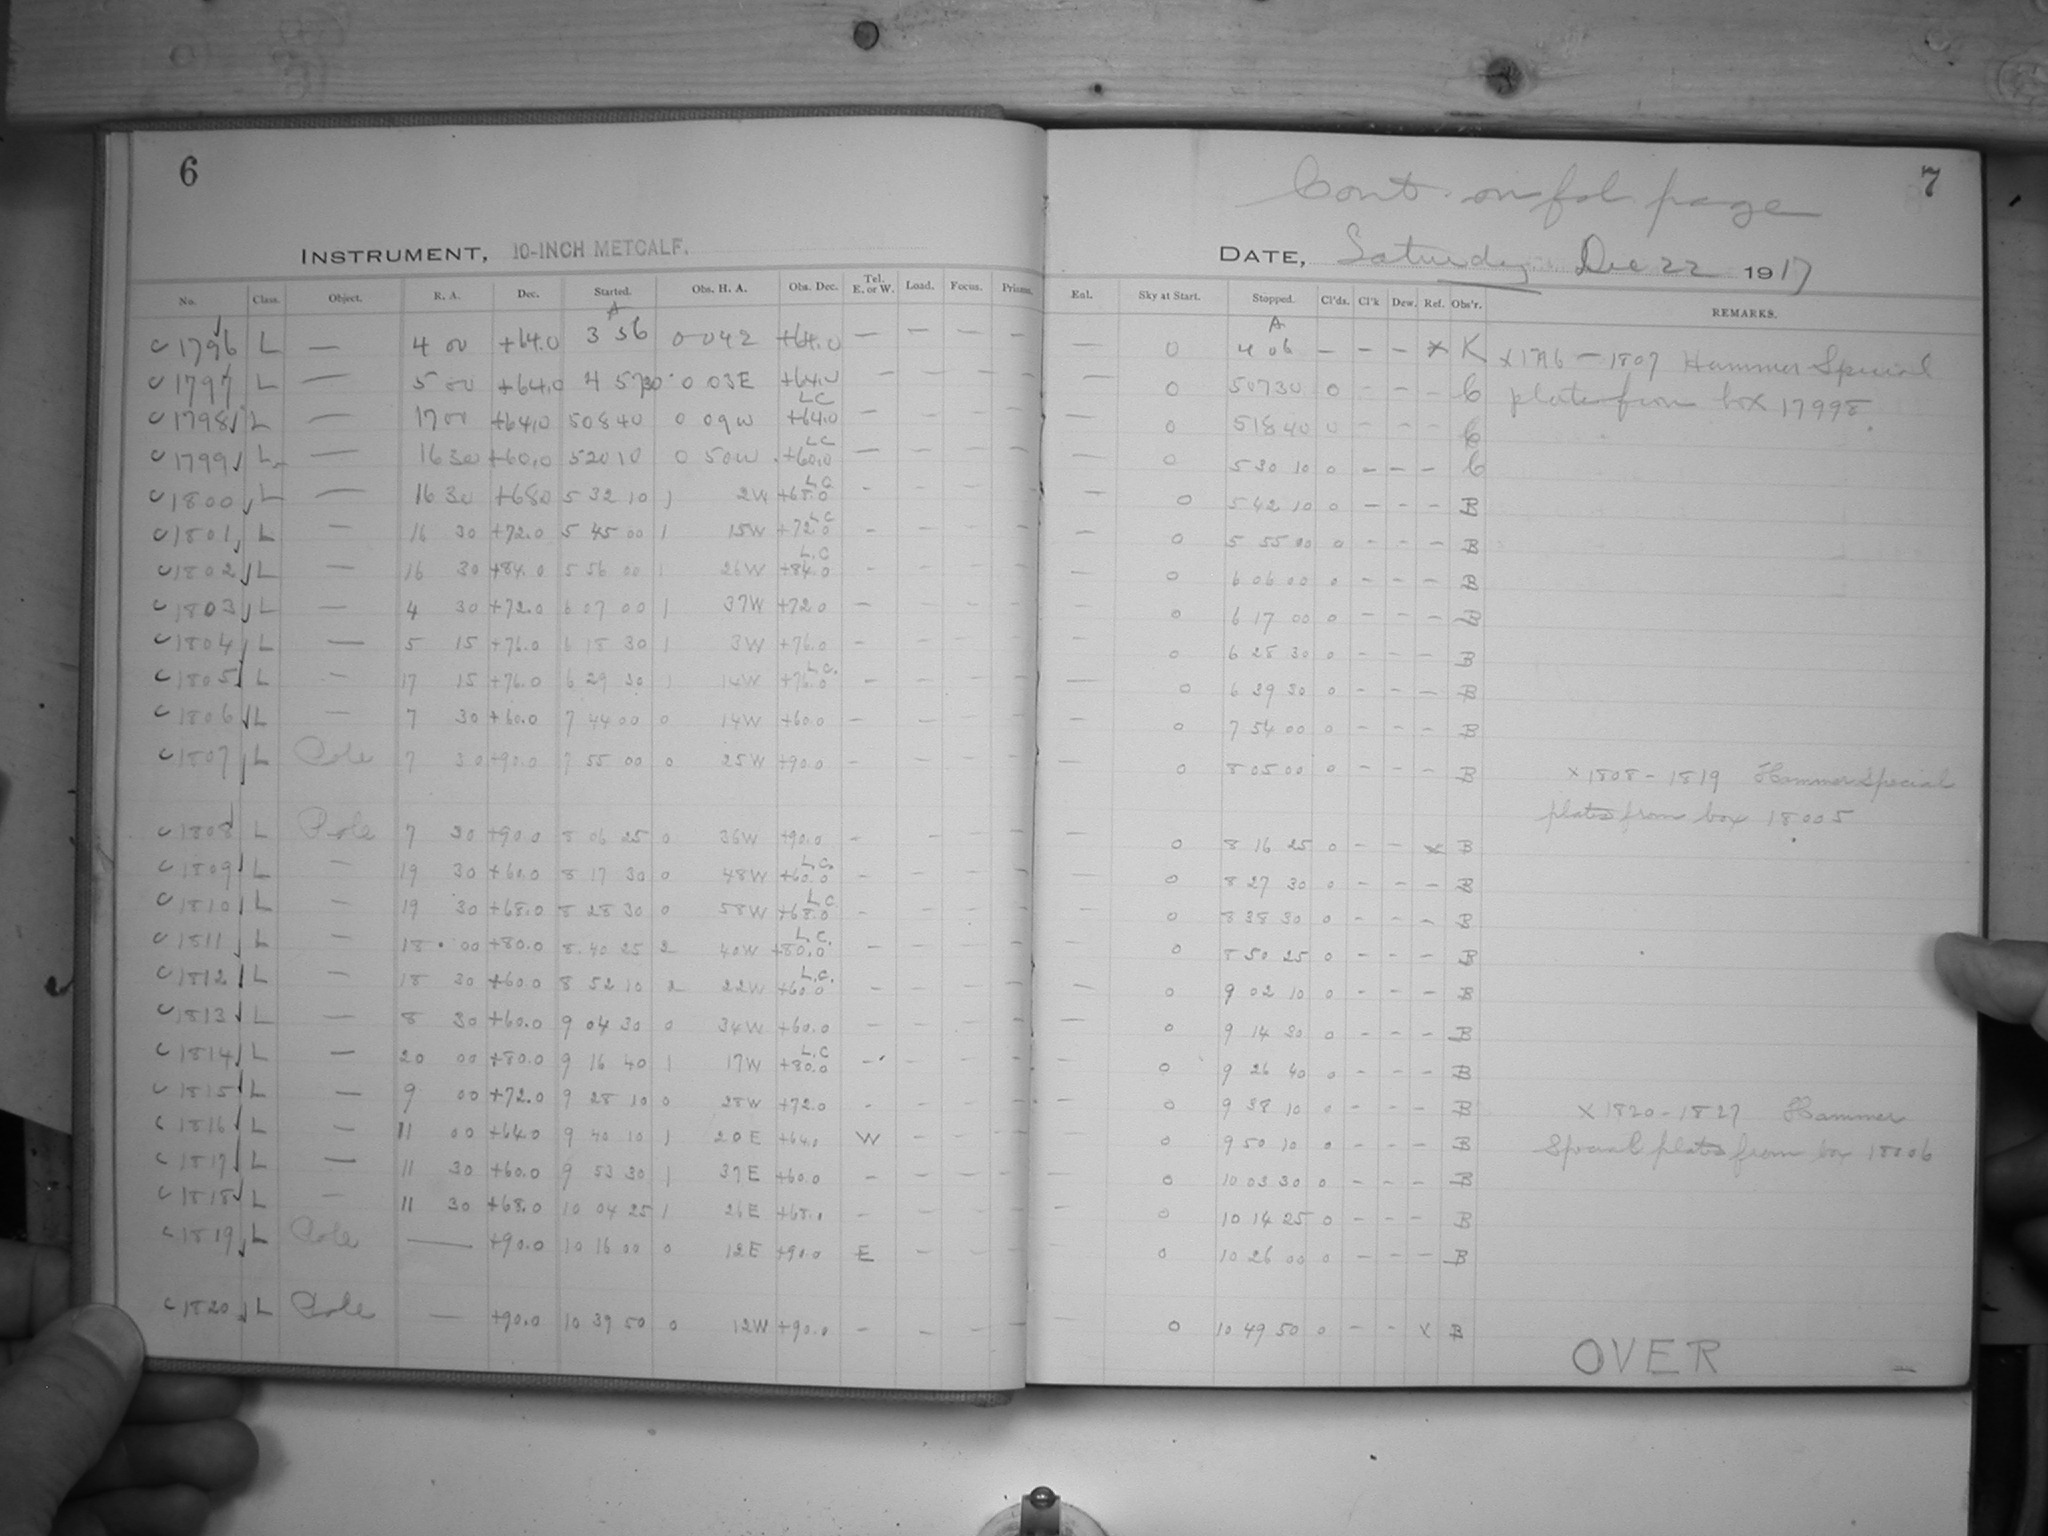 6
INSTRUMENT, 10-INCH METCALF.
No. Class. Object. R. A. Dec. Started. Obs. H. A. Obs. Dec. Tel. E. or W. Load. Focus. Prisms.
A
C 1796 L — 4 00 +64.0 3 56 +64.0 — — — —
C 1797 L — 5 00 +64.0 0 03E +64.0 — — — —
C 1798 L — 17 00 +64.0 5 08 40 0 09W LC +64.0 — — — —
C 1799 L — 16 30 +60.0 5 20 10 0 50W LC +60.0 — — — —
C 1800 L — 16 30 +68.0 5 32 10 1 2W L.C +68.0 — — — —
C 1801 L — 16 30 +72.0 5 45 00 1 15W L.C +72.0 — — — —
C 1802 L — 16 30 +84.0 5 56 00 1 26W L.C +84.0 — — — —
C 1803 L — 4 30 +72.0 6 07 00 1 37W +72.0 — — — —
C 1804 L — 5 15 +76.0 6 18 30 1 3W +76.0 — — — —
C 1805 L — 17 15 +76.0 6 29 30 1 14W L.C. +76.0 — — — —
C 1806 L — 7 30 +60.0 7 44 00 0 14W +60.0 — — — —
C 1807 L Pole 7 30 +90.0 7 55 00 0 25W +90.0 — — — —
C 1808 L Pole 7 30 +90.0 8 06 25 0 36W +90.0 — — — —
C 1809 L — 19 30 +60.0 8 17 30 0 48W L.C. +60.0 — — — —
C 1810 L — 19 30 +68.0 8 28 30 0 58W L.C. +68.0 — — — —
C 1811 L — 18 00 +80.0 8 40 25 2 40W L.C. +80.0 — — — —
C 1812 L — 18 30 +60.0 8 52 10 2 22W L.C. +60.0 — — — —
C 1813 L — 8 30 +60.0 9 04 30 0 34W +60.0 — — — —
C 1814 L — 20 00 +80.0 9 16 40 1 17W L.C +80.0 — — — —
C 1815 L — 9 00 +72.0 9 28 10 0 28W +72.0 — — — —
C 1816 L — 11 00 +64.0 9 40 10 1 20E +64.0 W — — —
C 1817 L — 11 30 +60.0 9 53 30 1 37E +60.0 — — — —
C 1818 L — 11 30 +68.0 10 04 25 1 26E +68.0 — — — —
C 1819 L Pole — +90.0 10 16 00 0 12E +90.0 E — — —
C 1820 L Pole — +90.0 10 39 50 0 12W +90.0 — — — —
7
Cont. on fol page
DATE, Saturday Dec 22 1917
Enl. Sky at Start. Stopped. Cl'ds. Cl'k Dew. Ref. Obs'r. REMARKS.
A
— 0 4 06 — — — x K x 1796 — 1807 Hammer Special
— 0 5 07 30 0 — — — C plates from box 17998
— 0 5 18 40 0 — — — C
— 0 5 30 10 0 — — — C
— 0 5 42 10 0 — — — B
— 0 5 55 00 0 — — — B
— 0 6 06 00 0 — — — B
— 0 6 17 00 0 — — — B
— 0 6 28 30 0 — — — B
— 0 6 39 30 0 — — — B
— 0 7 54 00 0 — — — B
— 0 8 05 00 0 — — — B x 1808 - 1819 Hammer Special
plates from box 18005
— 0 8 16 25 0 — — x B
— 0 8 27 30 0 — — — B
— 0 8 38 30 0 — — — B
— 0 8 50 25 0 — — — B
— 0 9 02 10 0 — — — B
— 0 9 14 30 0 — — — B
— 0 9 26 40 0 — — — B
— 0 9 38 10 0 — — — B x 1820 - 1827 Hammer
— 0 9 50 10 0 — — — B Special plates from box 18006
— 0 10 03 30 0 — — — B
— 0 10 14 25 0 — — — B
— 0 10 26 00 0 — — — B
— 0 10 49 50 0 — — x B
OVER